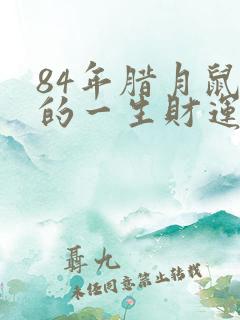 84年腊月鼠
的一生财运
聶九
未经同意禁止转载